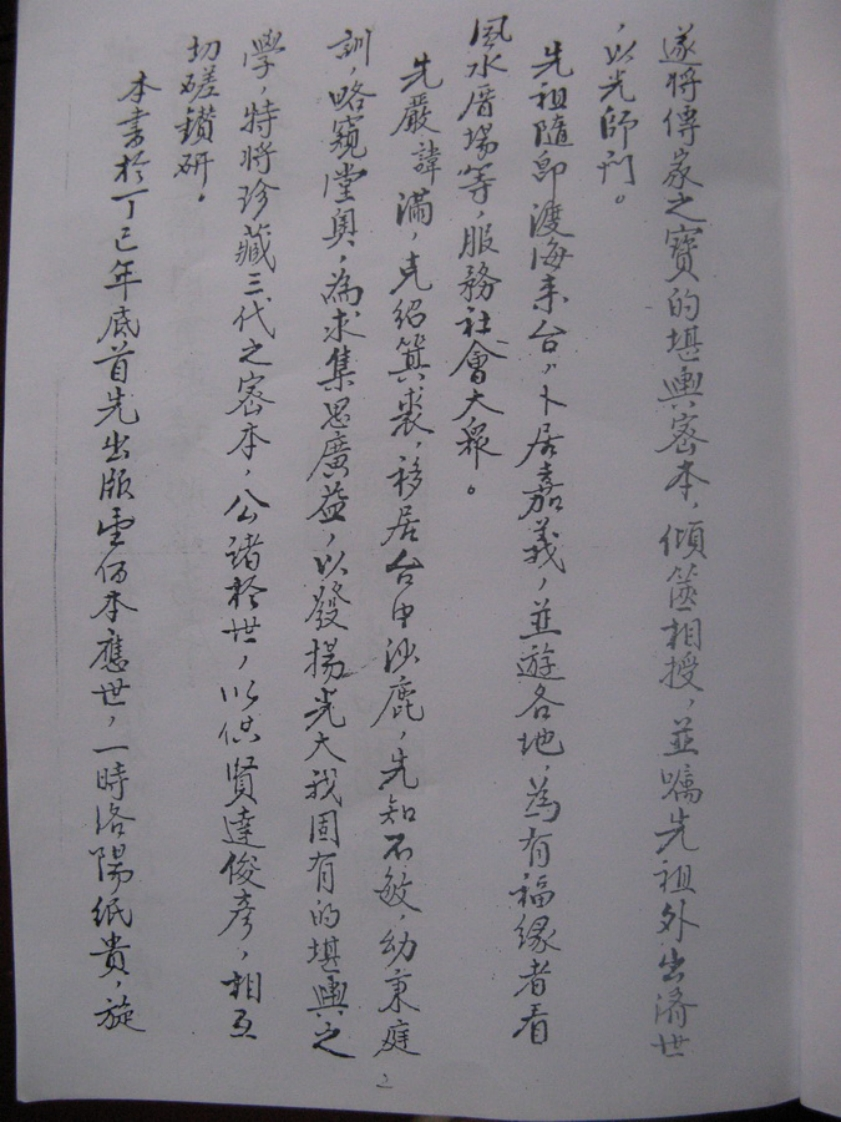 遂將傳家之寶的堪輿密本，傾篋相授，並囑先祖外出濟世
，以光師門。
先祖隨即渡海来台，卜居嘉義，並遊各地，為有福緣者看
風水厝場等，服務社會大眾。
先嚴諱滿，克紹箕裘，移居台中沙鹿，先知不敏，幼秉庭
訓，略窺堂奧，為求集思廣益，以發揚光大我固有的堪輿之
學，特將珍藏三代之密本，公諸於世，以供賢達俊彥，相互
切磋鑽研。
本書於丁巳年底首先出版壹佰本應世，一時洛陽紙貴，旋
2